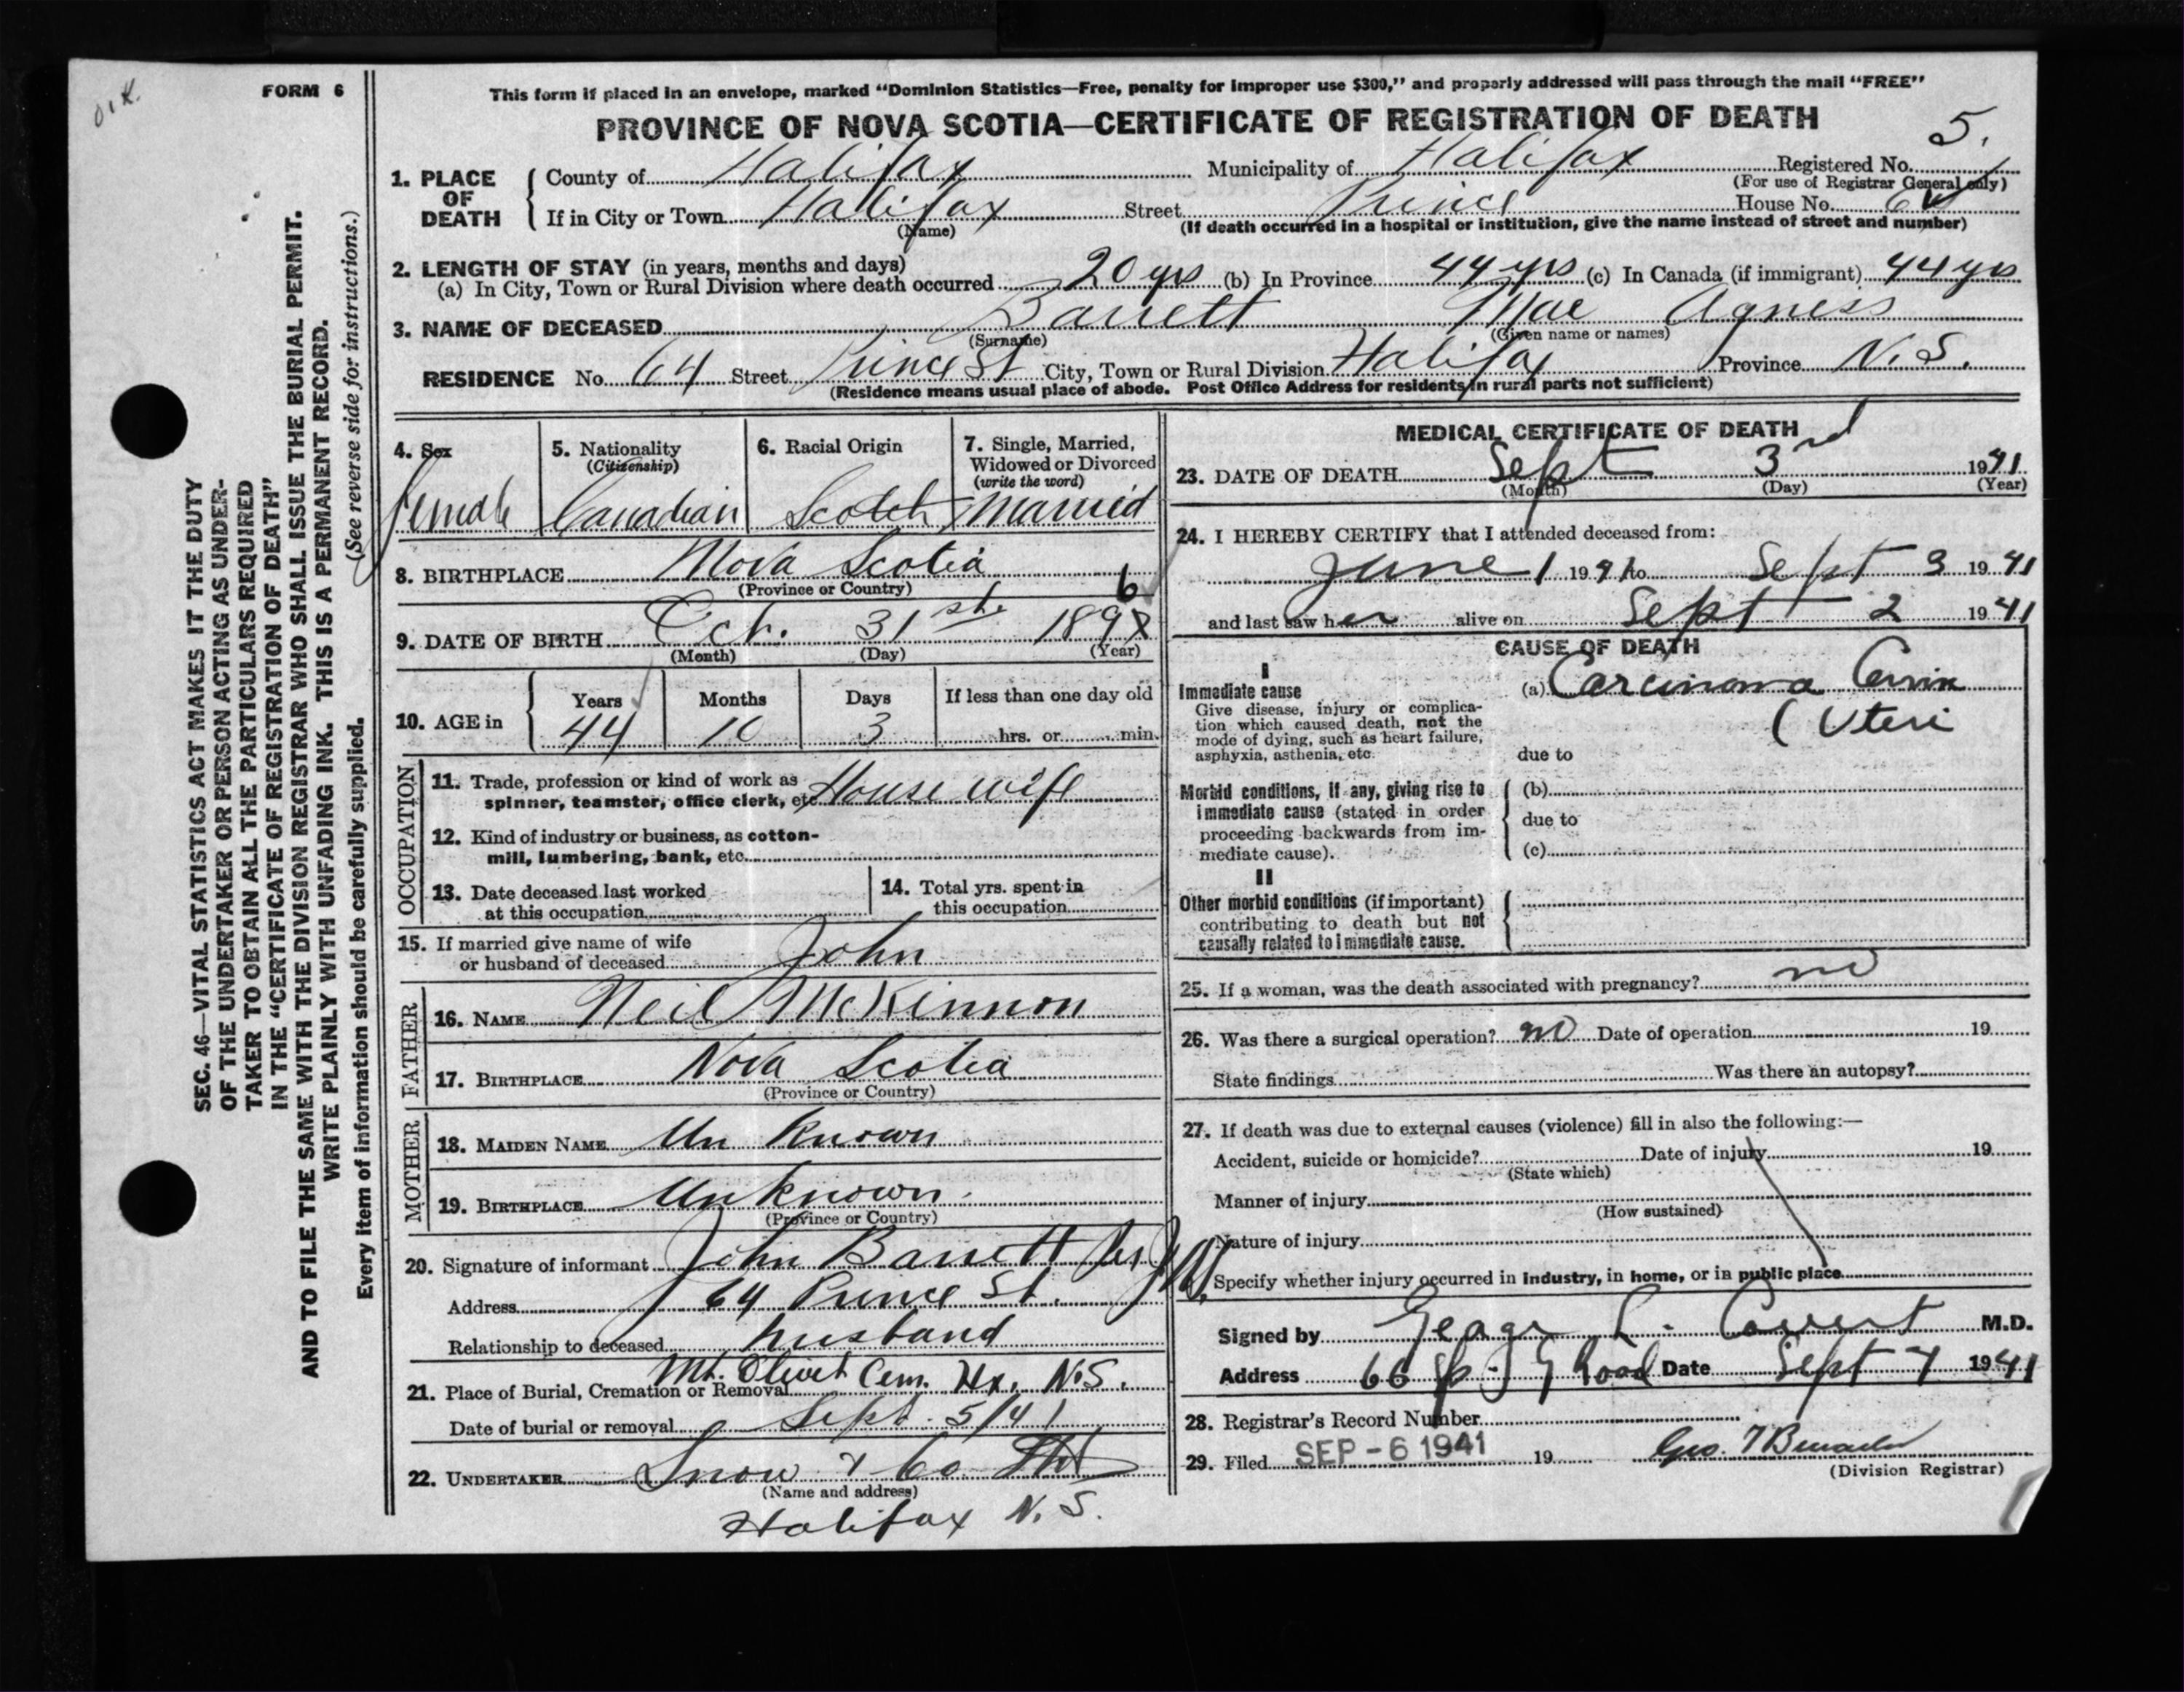 O.K.
FORM 6
This form if placed in an envelope, marked "Dominion Statistics—Free, penalty for improper use $300," and properly addressed will pass through the mail "FREE"
PROVINCE OF NOVA SCOTIA—CERTIFICATE OF REGISTRATION OF DEATH
5.
1. PLACE OF DEATH
County of Halifax Municipality of Halifax Registered No.
(For use of Registrar General only)
If in City or Town Halifax Street Prince House No. 64
(Name) (If death occurred in a hospital or institution, give the name instead of street and number)
2. LENGTH OF STAY (in years, months and days)
(a) In City, Town or Rural Division where death occurred 20 yrs (b) In Province 44 yrs (c) In Canada (if immigrant) 44 yrs
3. NAME OF DECEASED Barrett Mae Agness
(Surname) (Given name or names)
RESIDENCE No. 64 Street Prince St City, Town or Rural Division Halifax Province N.S.
(Residence means usual place of abode. Post Office Address for residents in rural parts not sufficient)
4. Sex
Female
5. Nationality
(Citizenship)
Canadian
6. Racial Origin
Scotch
7. Single, Married,
Widowed or Divorced
(write the word)
Married
8. BIRTHPLACE Nova Scotia
(Province or Country)
6
9. DATE OF BIRTH Oct. 31st. 189
(Month) (Day) (Year)
10. AGE in
Years Months Days If less than one day old
44 10 3 hrs. or min.
OCCUPATION
11. Trade, profession or kind of work as
spinner, teamster, office clerk, etc. House wife
12. Kind of industry or business, as cotton-
mill, lumbering, bank, etc.
13. Date deceased last worked
at this occupation
14. Total yrs. spent in
this occupation
15. If married give name of wife
or husband of deceased John
FATHER
16. NAME Neil McKinnon
17. BIRTHPLACE Nova Scotia
(Province or Country)
MOTHER
18. MAIDEN NAME Un Known
19. BIRTHPLACE Unknown.
(Province or Country)
20. Signature of informant John Barrett
Address 64 Prince St.
Relationship to deceased husband
21. Place of Burial, Cremation or Removal Mt. Olivet Cem. Hx. N.S.
Date of burial or removal Sept. 5/41
22. UNDERTAKER Snow & Co.
(Name and address)
Halifax N.S.
MEDICAL CERTIFICATE OF DEATH
23. DATE OF DEATH Sept 3rd 1941
(Month) (Day) (Year)
24. I HEREBY CERTIFY that I attended deceased from:
June 1 1941 to Sept 3 1941
and last saw her alive on Sept 2 1941
CAUSE OF DEATH
I
Immediate cause
Give disease, injury or complica-
tion which caused death, not the
mode of dying, such as heart failure,
asphyxia, asthenia, etc.
(a) Carcinoma Cervix
(Uteri
due to
Morbid conditions, if any, giving rise to
immediate cause (stated in order
proceeding backwards from im-
mediate cause).
(b)
due to
(c)
II
Other morbid conditions (if important)
contributing to death but not
causally related to immediate cause.
25. If a woman, was the death associated with pregnancy? no
26. Was there a surgical operation? no Date of operation 19
State findings Was there an autopsy?
27. If death was due to external causes (violence) fill in also the following:—
Accident, suicide or homicide? Date of injury 19
(State which)
Manner of injury
(How sustained)
Nature of injury
Specify whether injury occurred in industry, in home, or in public place
Signed by George L. Covert M.D.
Address 66 Sp. G Road Date Sept 4 1941
28. Registrar's Record Number
29. Filed SEP -6 1941 19
(Division Registrar)
SEC. 46—VITAL STATISTICS ACT MAKES IT THE DUTY
OF THE UNDERTAKER OR PERSON ACTING AS UNDER-
TAKER TO OBTAIN ALL THE PARTICULARS REQUIRED
IN THE "CERTIFICATE OF REGISTRATION OF DEATH"
AND TO FILE THE SAME WITH THE DIVISION REGISTRAR WHO SHALL ISSUE THE BURIAL PERMIT.
WRITE PLAINLY WITH UNFADING INK. THIS IS A PERMANENT RECORD.
(See reverse side for instructions.)
Every item of information should be carefully supplied.